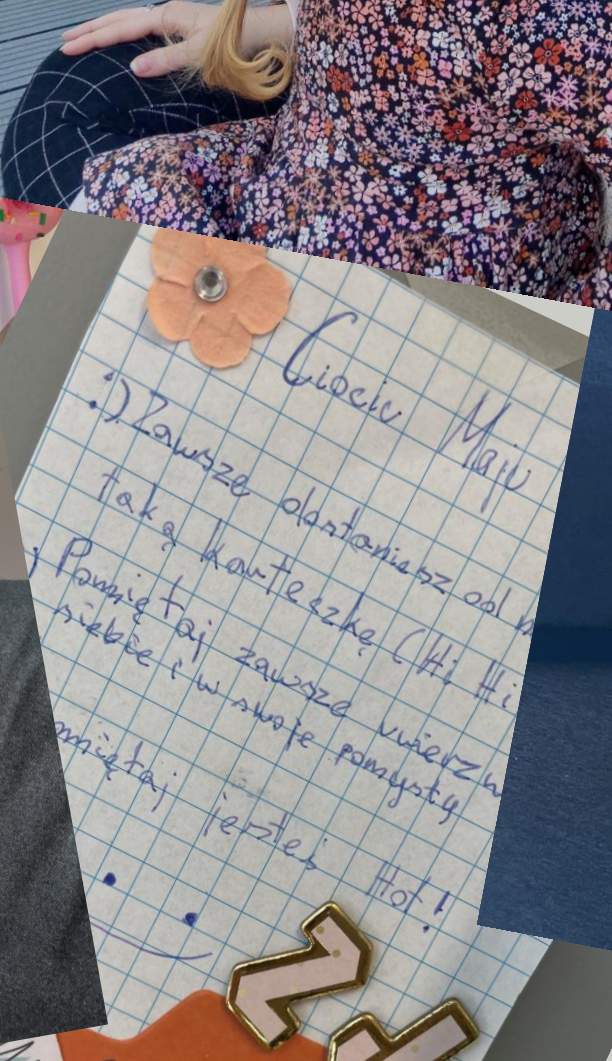 Ciociu Maju
:) Zawsze dostaniesz od
taką karteczkę (Hi Hi
Pamiętaj zawsze uwierz w
siebie i w swoje pomysły
miętaj jesteś Hot!
2